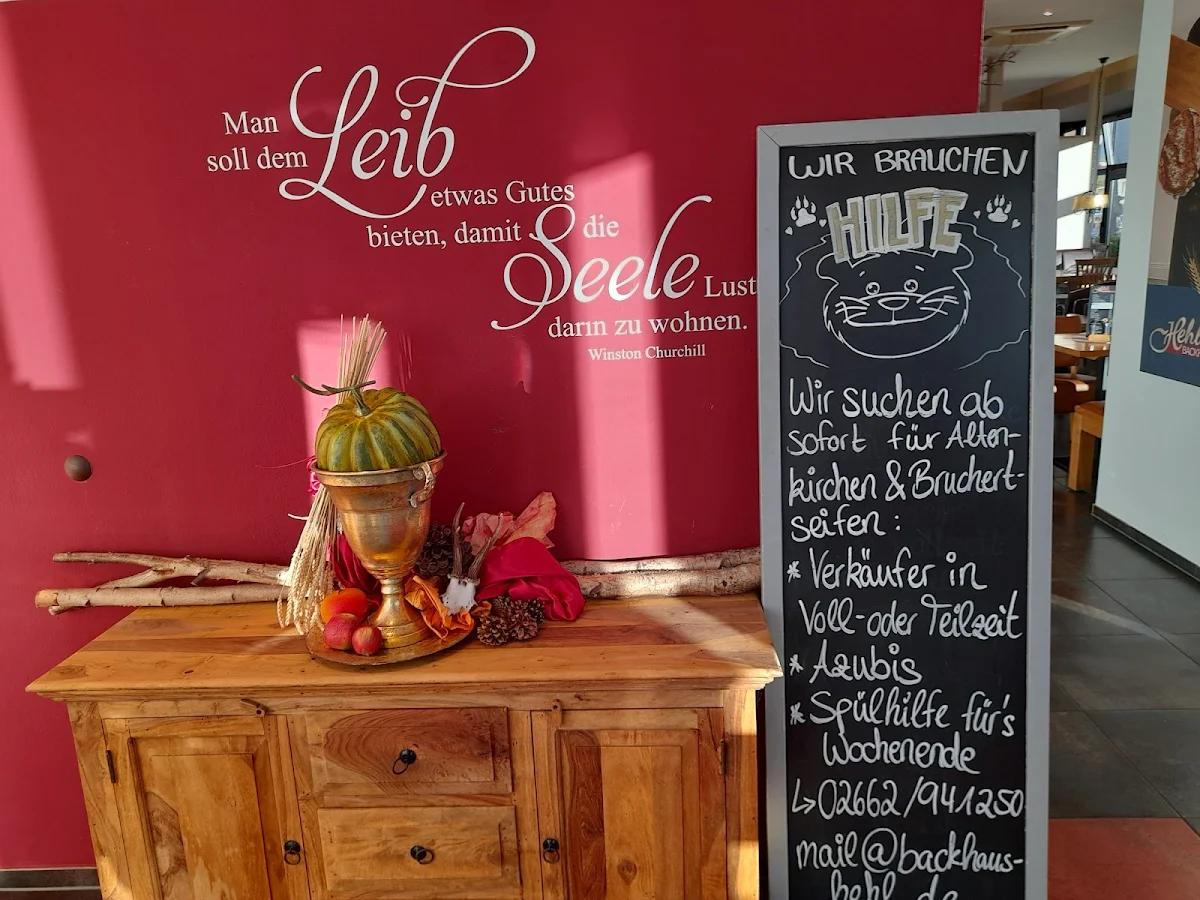 Man
soll dem Leib
etwas Gutes
bieten, damit die
Seele Lust
darin zu wohnen.
Winston Churchill
WIR BRAUCHEN
HILFE
Wir suchen ab
sofort für Alten-
kirchen & Bruchert-
seifen:
* Verkäufer in
Voll- oder Teilzeit
* Azubis
* Spülhilfe für's
Wochenende
↳ 02662/941250
mail@backhaus-